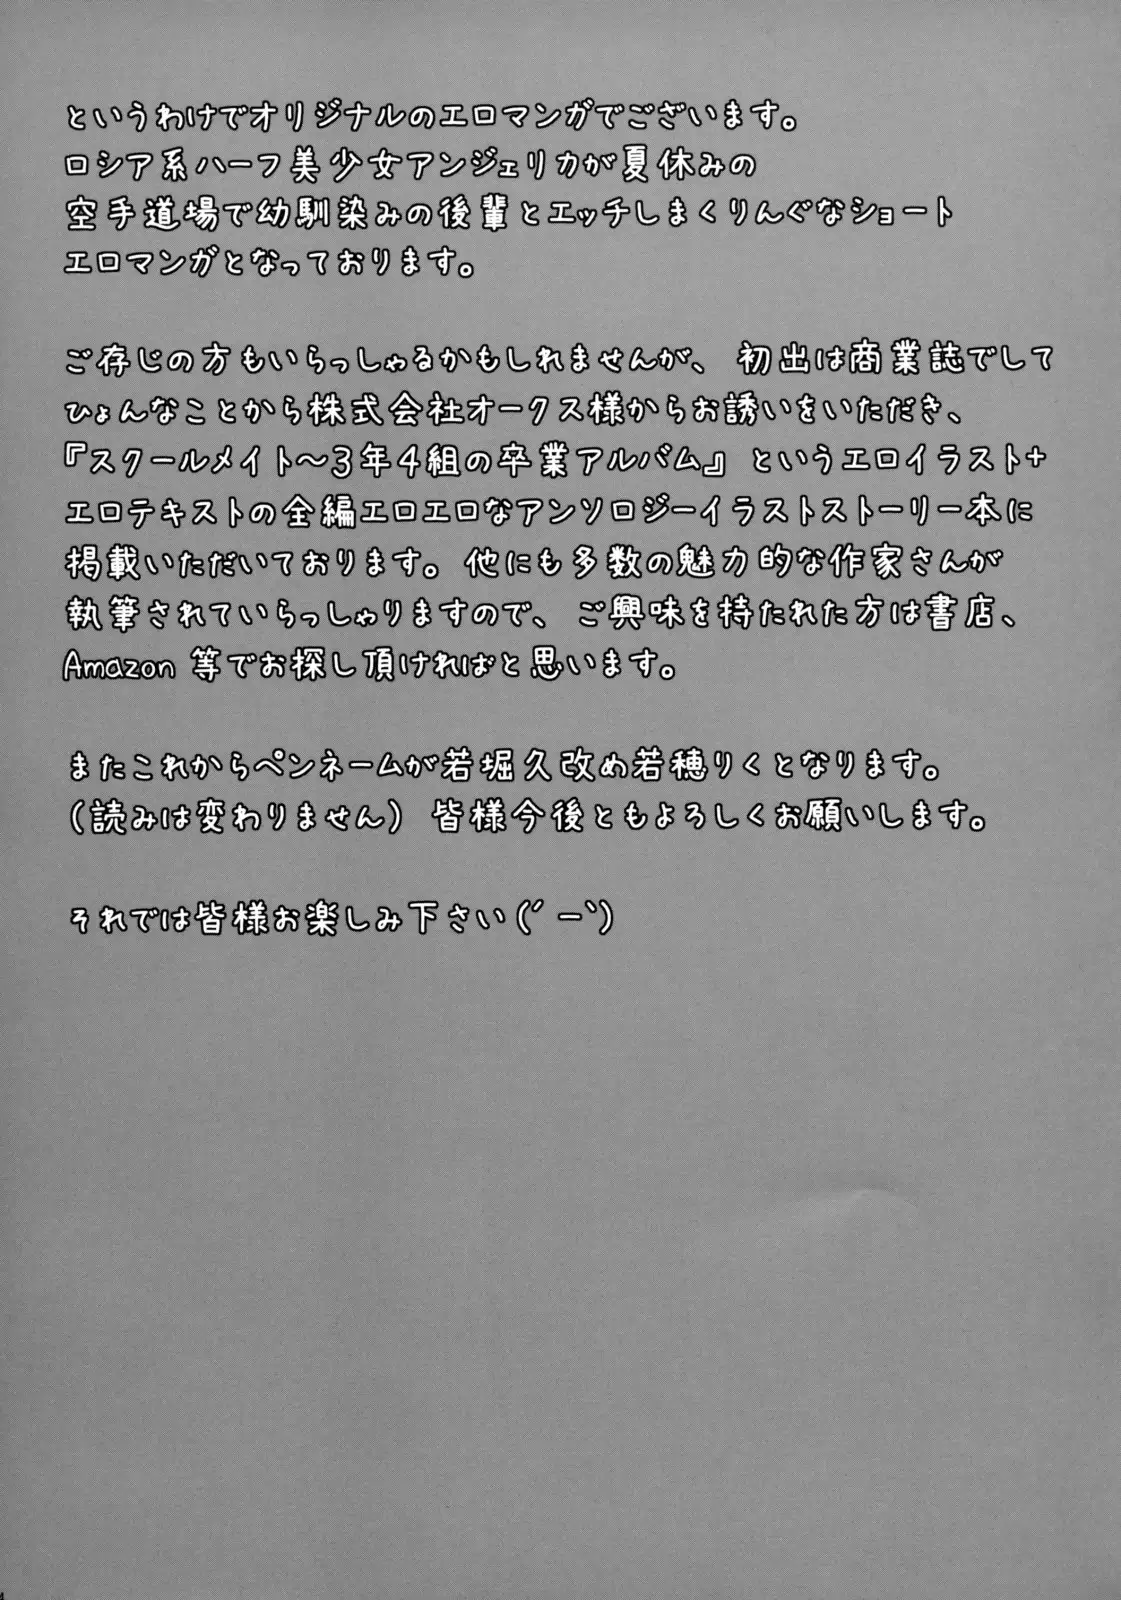 というわけでオリジナルのエロマンガでございます。
ロシア系ハーフ美少女アンジェリカが夏休みの
空手道場で幼馴染みの後輩とエッチしまくりんぐなショート
エロマンガとなっております。
ご存じの方もいらっしゃるかもしれませんが、初出は商業誌でして
ひょんなことから株式会社オークス様からお誘いをいただき、
『スクールメイト～3年4組の卒業アルバム』というエロイラスト+
エロテキストの全編エロエロなアンソロジーイラストストーリー本に
掲載いただいております。他にも多数の魅力的な作家さんが
執筆されていらっしゃりますので、ご興味を持たれた方は書店、
Amazon 等でお探し頂ければと思います。
またこれからペンネームが若堀久改め若穂りくとなります。
(読みは変わりません) 皆様今後ともよろしくお願いします。
それでは皆様お楽しみ下さい(´ー`)